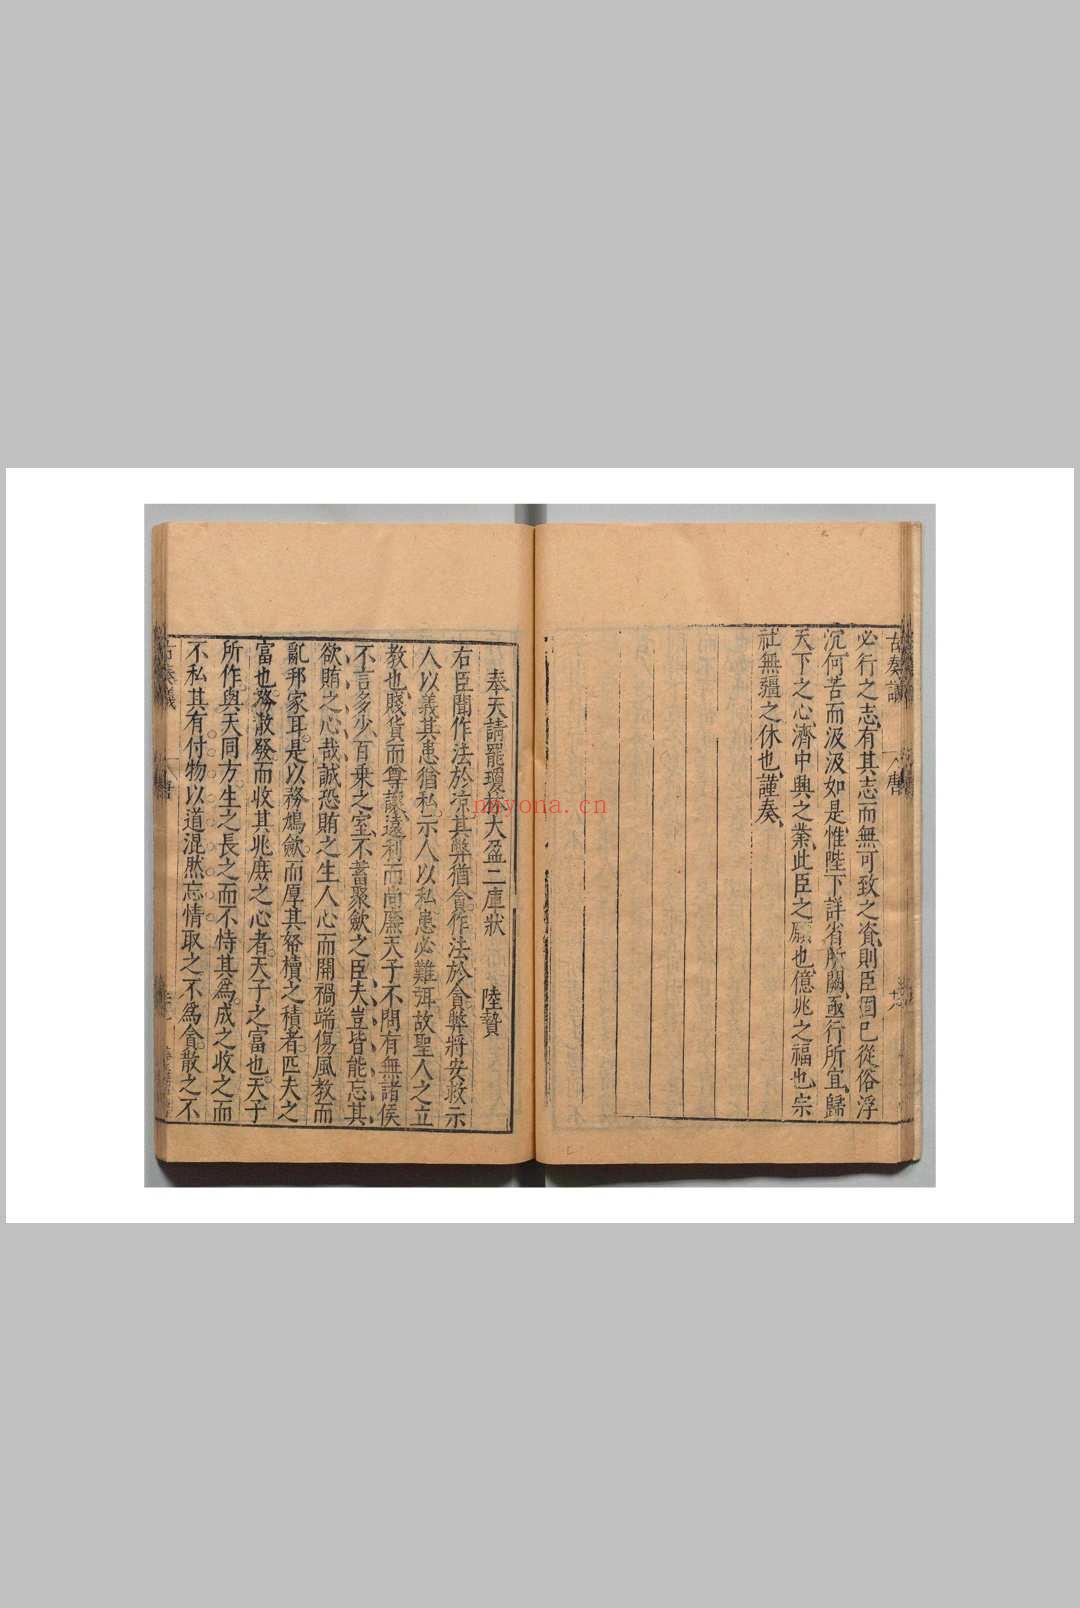 古奏議
唐
必行之志有其志而無可致之資則臣固已從俗浮
沉何苦而汲汲如是惟陛下詳省所闕亟行所宜歸
天下之心濟中興之業此臣之願也億兆之福也宗
社無疆之休也謹奏
奉天請罷瓊林大盈二庫狀 陸贄
右臣聞作法於凉其弊猶貪作法於貪弊將安救示
人以義其患猶私示人以私患必難弭故聖人之立
教也賤貨而尊讓遠利而尚廉天子不問有無諸侯
不言多少百乘之室不蓄聚斂之臣夫豈皆能忘其
欲賄之心哉誠恐賄之生人心而開禍端傷風教而
亂邦家耳是以務鳩斂而厚其帑櫝之積者匹夫之
富也務散發而收其兆庶之心者天子之富也天子
所作與天同方生之長之而不恃其為成之收之而
不私其有付物以道混然忘情取之不為貪散之不
古奏議
唐
nnyona.cn